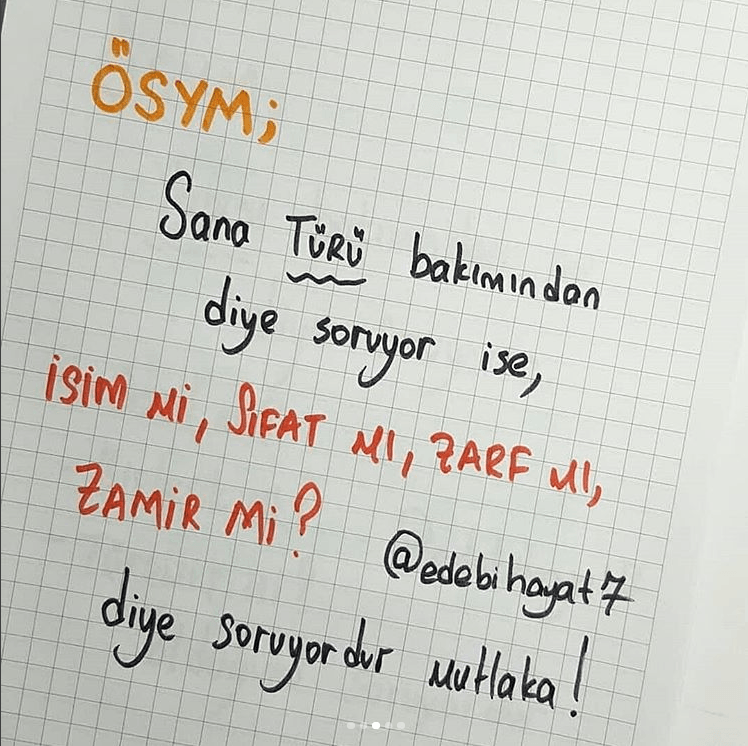 ÖSYM;
Sana TÜRÜ bakımından
diye soruyor ise,
İSİM Mİ, SIFAT MI, ZARF MI,
ZAMİR Mİ?
@edebihayat7
diye soruyordur mutlaka!